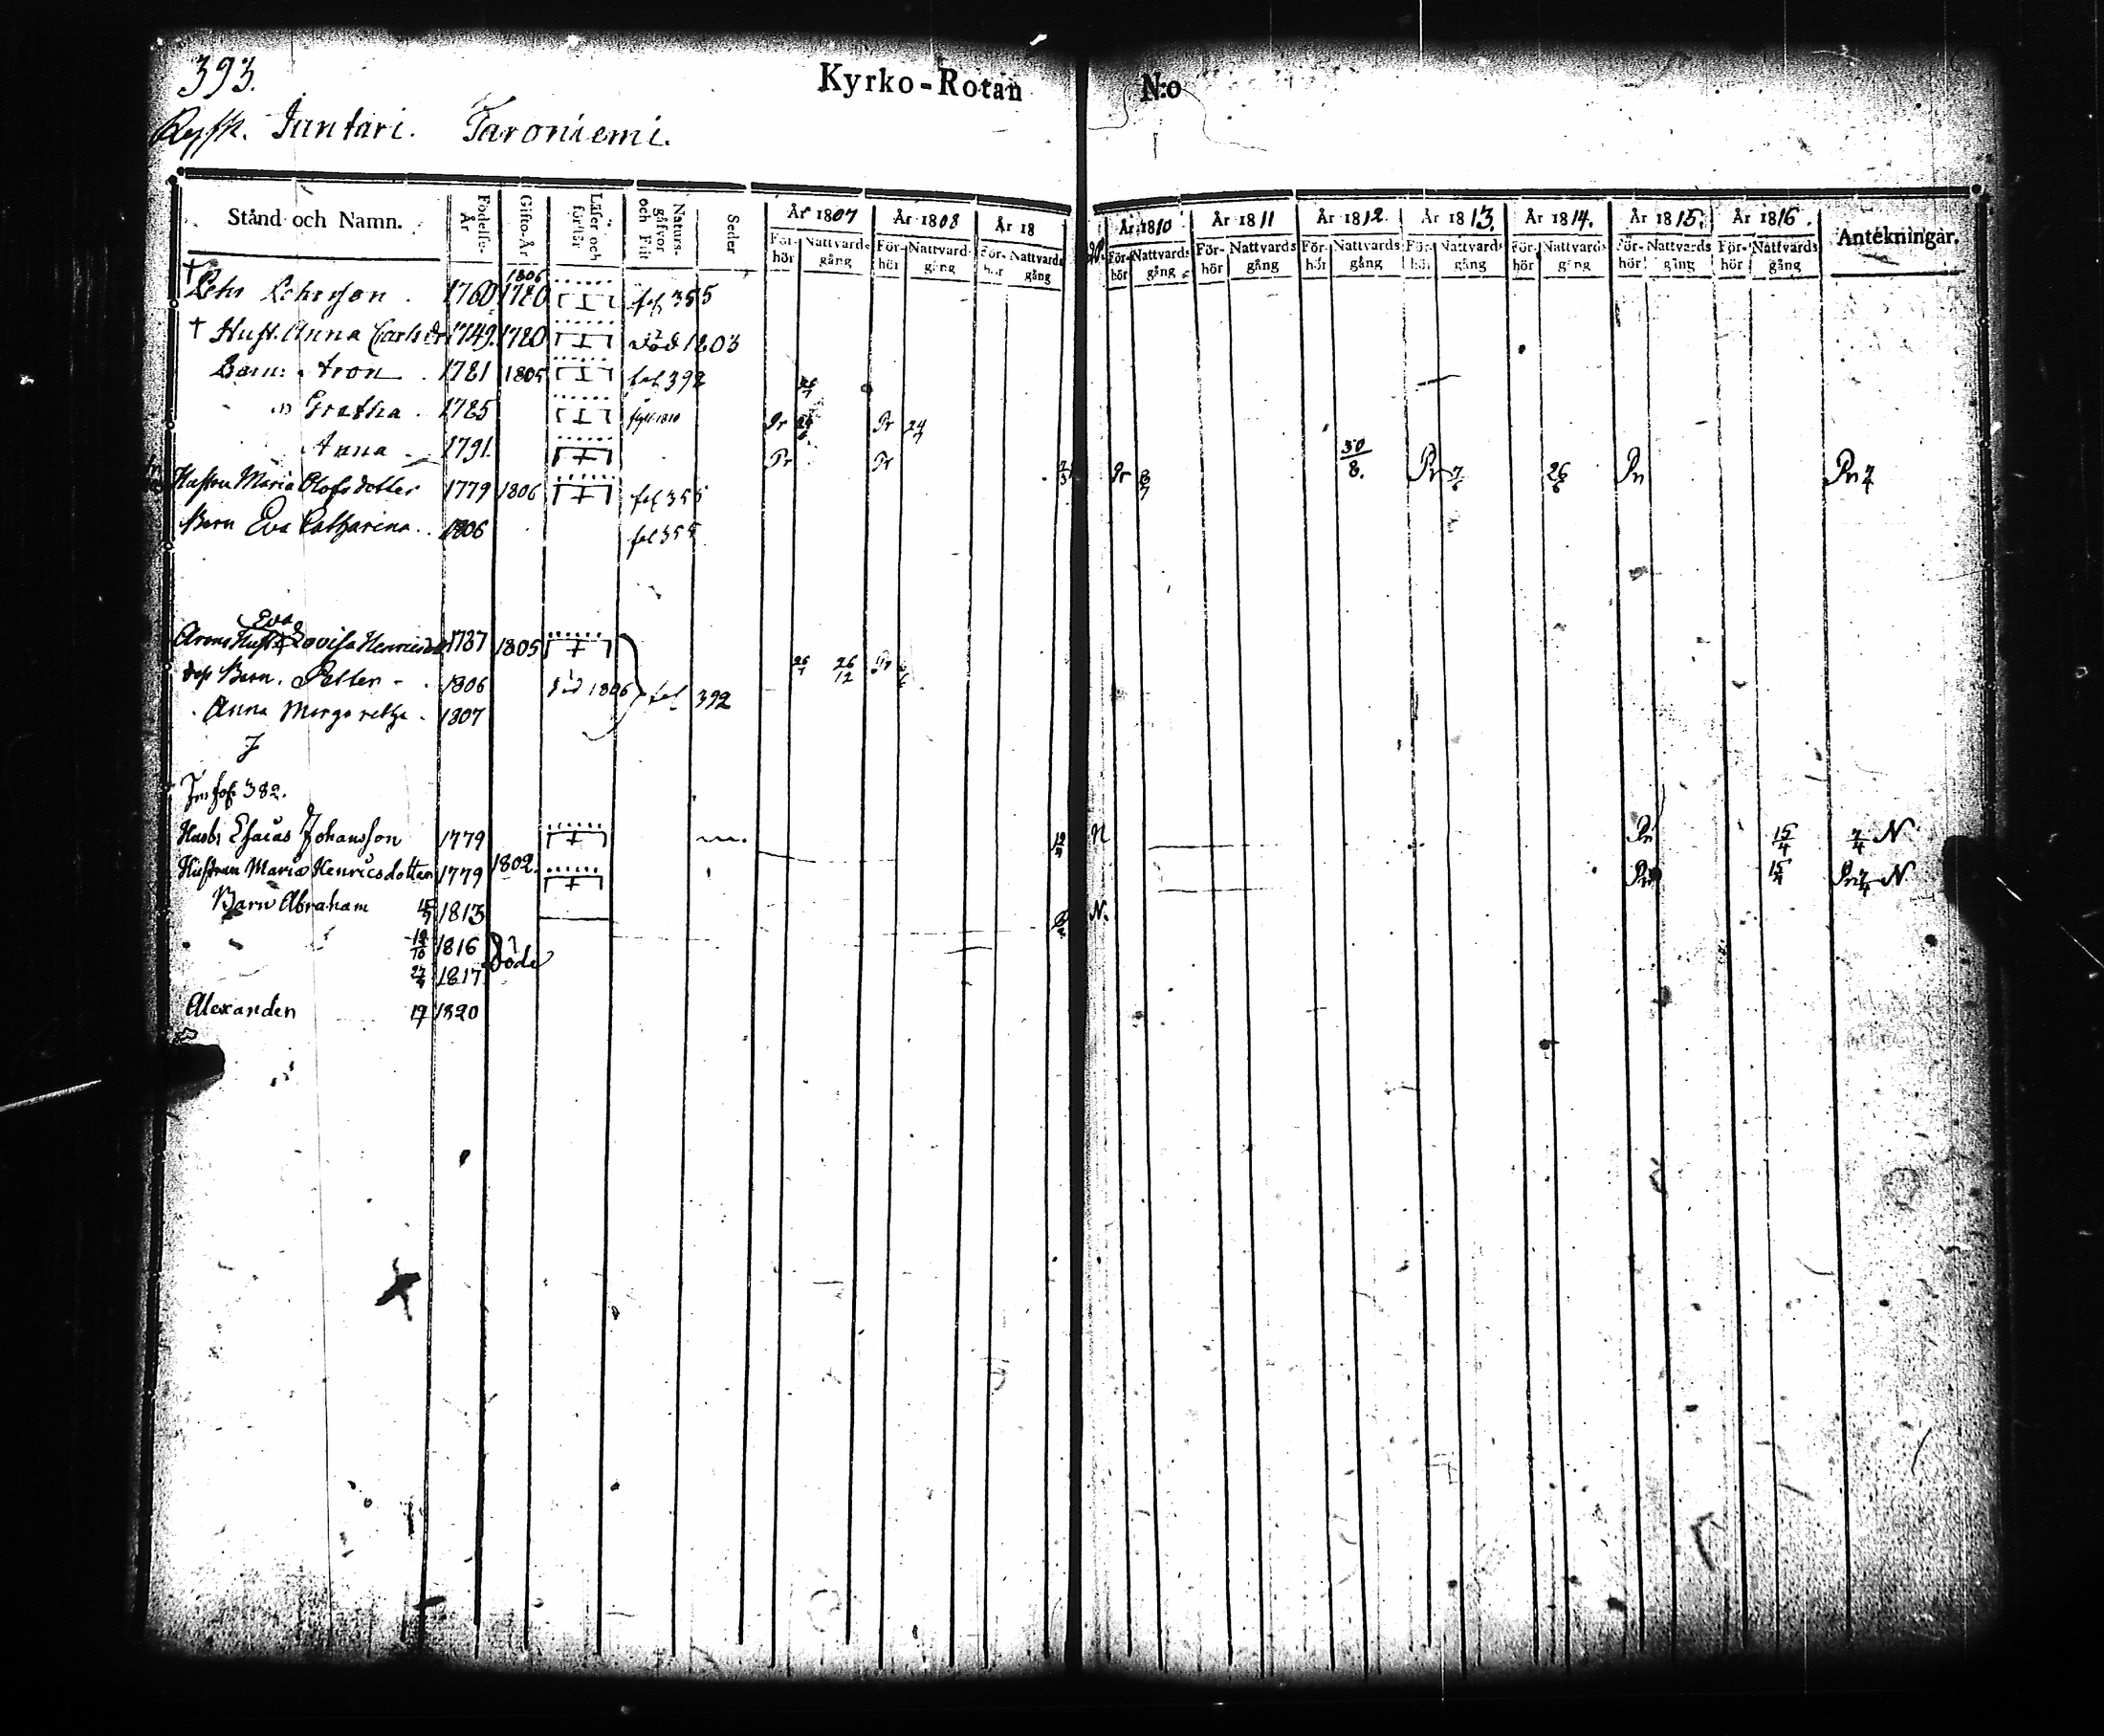 393.
Kyrko-Rotan N:o
Juntari. Taroniemi.
Stånd och Namn. Födelse-År Gifto-År Läser och förstår Naturs-gåfvor och Flit Seder År 1807 År 1808 År 18 År 1810 År 1811 År 1812. År 1813. År 1814. År 1815. År 1816. Antekningar.
För-hör Nattvards gång För-hör Nattvards gång För-hör Nattvards gång För-hör Nattvards gång För-hör Nattvards gång För-hör Nattvards gång För-hör Nattvards gång För-hör Nattvards gång För-hör Nattvards gång För-hör Nattvards gång
1806
† 1760 1780 fol 355
† Hust. Anna Carlsdr 1749. 1780 död 1803
Barn: Aron 1781 1805 fol 392
Gretha 1785 Pr 24/6 Pr 24/7
Anna 1791. Pr Pr 30/8.
Hustru Maria Olofsdotter 1779 1806 fol 355 Pr Pr 26/6 Pr Pr 7/4
Barn Eva Catharina 1806 fol 355
Eva
Arons Hust. Lovisa Henricsdr 1787 1805
Barn. Petter 1806 död 1806 fol 392 26/12
Anna Margaretha 1807
fol. 382.
Esaias Johansson 1779 N Pr 15/4 7/4 N
Hustrun Maria Henricsdotter 1779 1802. Pr 15/4 Pr 7/4 N
Barn Abraham 1813 N.
1816 Döde
1817
Alexander 17 1820